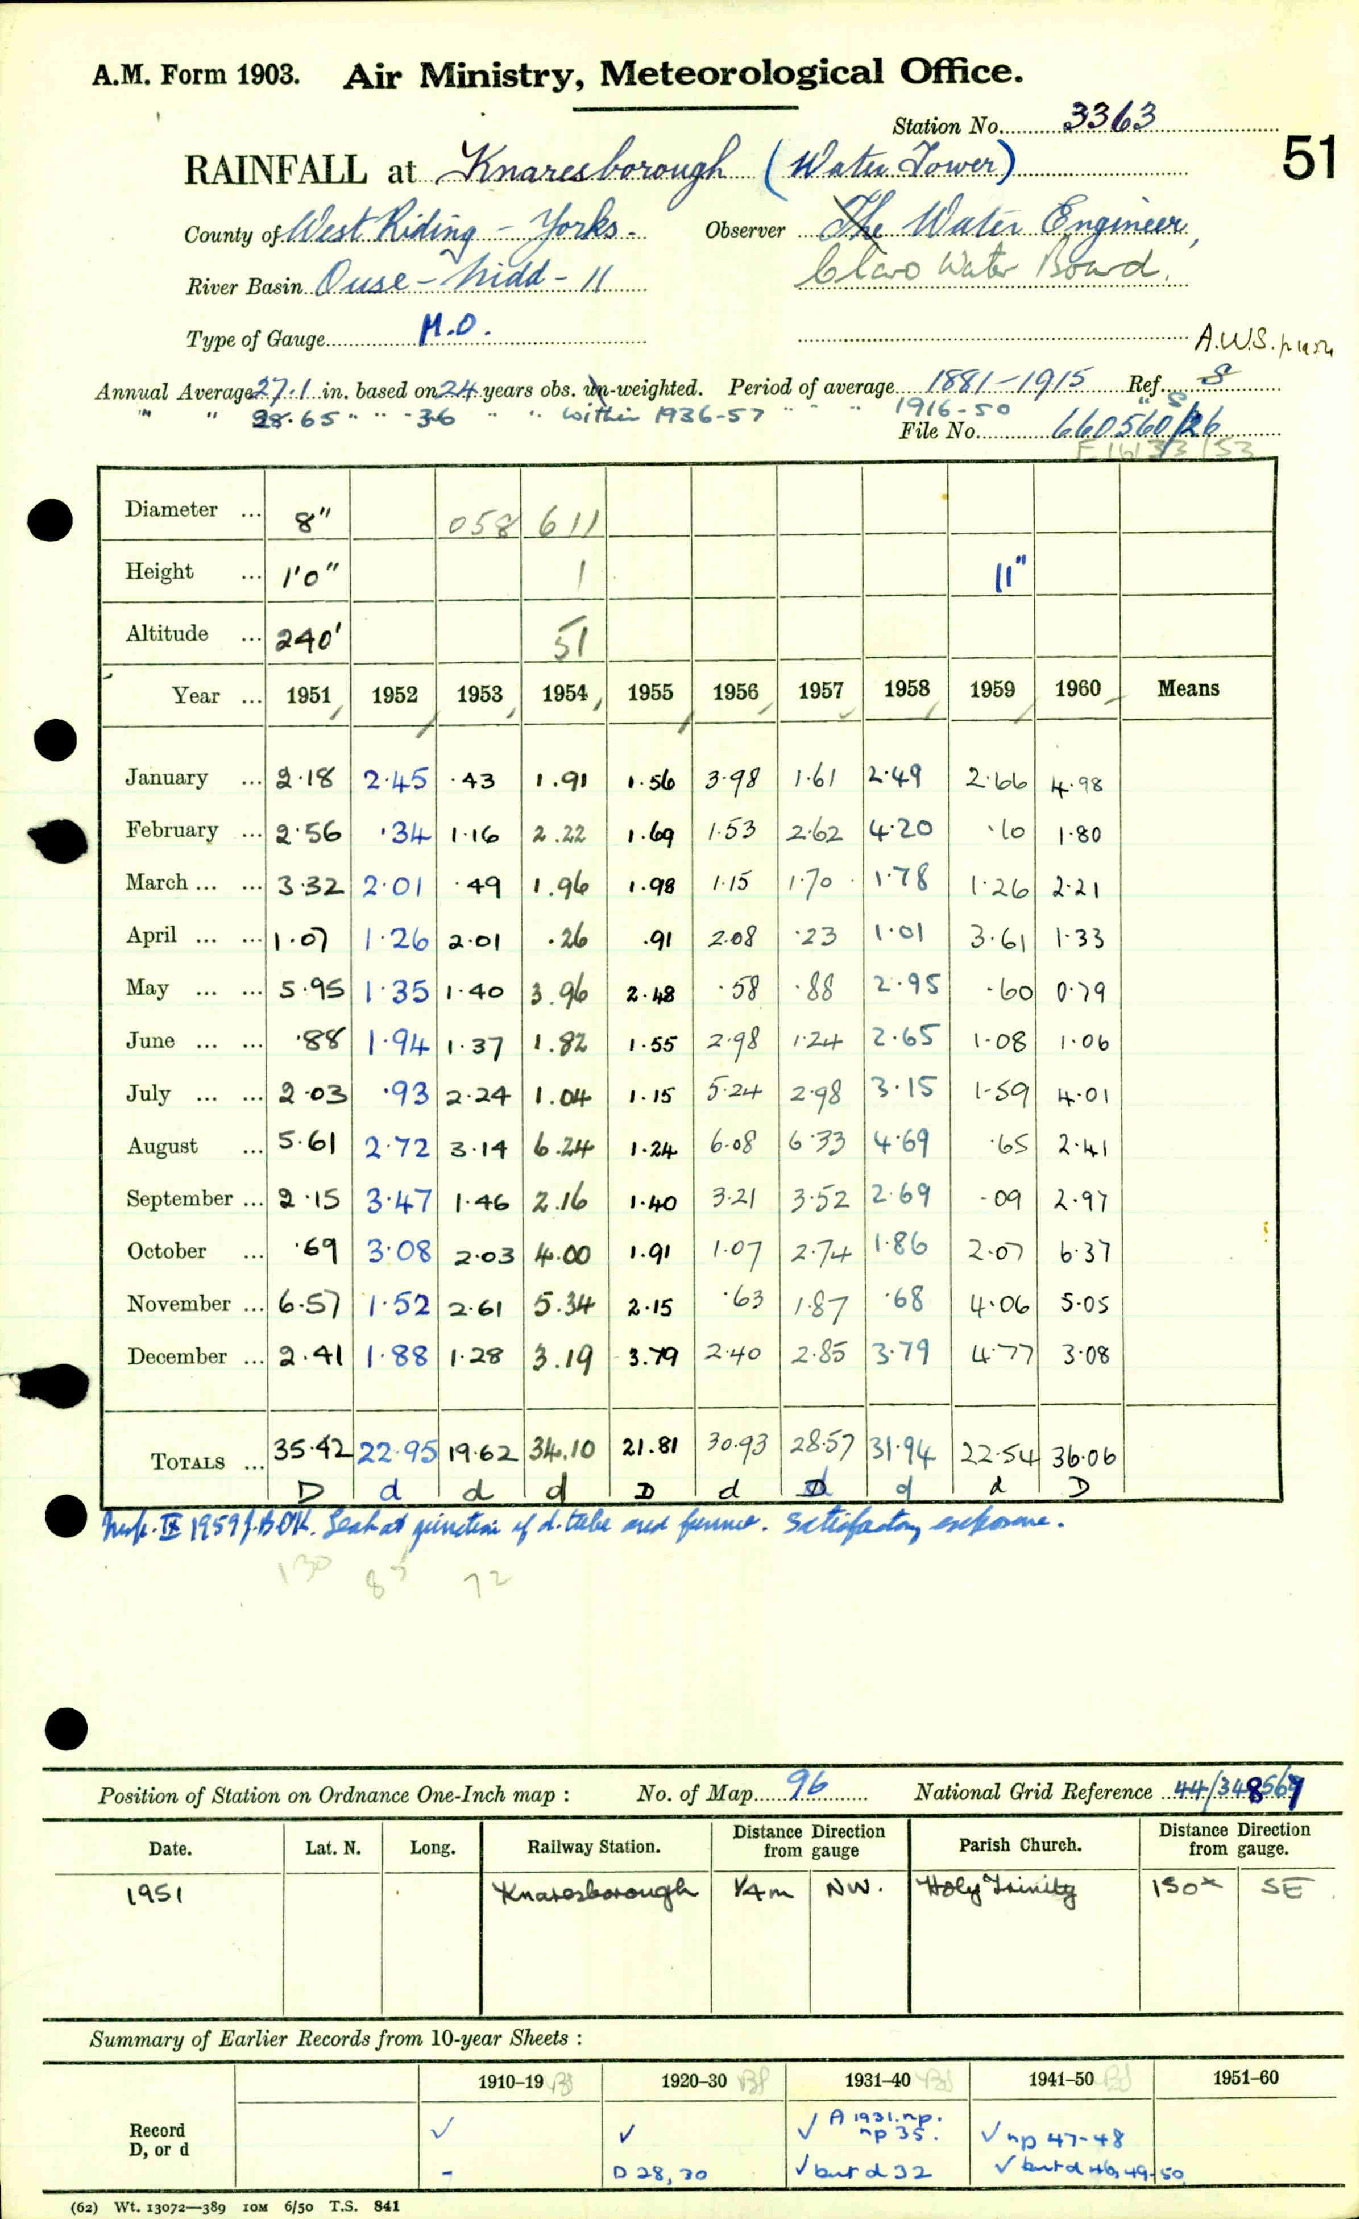 A.M. Form 1903. Air Ministry, Meteorological Office.
Station No. 3363
51
RAINFALL at Knaresborough (Water Tower)
County of West Riding - Yorks. Observer The Water Engineer,
River Basin Ouse - Nidd - 11 Claro Water Board.
Type of Gauge M.O. A.W.S.
Annual Average 27.1 in. based on 24 years obs. un-weighted. Period of average 1881-1915 Ref. S
" " 28.65 " " " 36 " " within 1936-57 " " " 1916-50 " S
File No. 660560/26
Diameter ... 8" 058 611
Height ... 1'0" 1 11"
Altitude ... 240' 51
Year ... 1951 1952 1953 1954 1955 1956 1957 1958 1959 1960 Means
January ... 2.18 2.45 .43 1.91 1.56 3.98 1.61 2.49 2.66 4.98
February ... 2.56 .34 1.16 2.22 1.69 1.53 2.62 4.20 .10 1.80
March ... ... 3.32 2.01 .49 1.96 1.98 1.15 1.70 1.78 1.26 2.21
April ... ... 1.07 1.26 2.01 .26 .91 2.08 .23 1.01 3.61 1.33
May ... ... 5.95 1.35 1.40 3.96 2.48 .58 .88 2.95 .60 0.79
June ... ... .88 1.94 1.37 1.82 1.55 2.98 1.24 2.65 1.08 1.06
July ... ... 2.03 .93 2.24 1.04 1.15 5.24 2.98 3.15 1.59 4.01
August ... 5.61 2.72 3.14 6.24 1.24 6.08 6.33 4.69 .65 2.41
September ... 2.15 3.47 1.46 2.16 1.40 3.21 3.52 2.69 .09 2.97
October ... .69 3.08 2.03 4.00 1.91 1.07 2.74 1.86 2.07 6.37
November ... 6.57 1.52 2.61 5.34 2.15 .63 1.87 .68 4.06 5.05
December ... 2.41 1.88 1.28 3.19 3.79 2.40 2.85 3.79 4.77 3.08
TOTALS ... 35.42 22.95 19.62 34.10 21.81 30.93 28.57 31.94 22.54 36.06
D d d d D d d d d D
Insp. IX 1959 Leak at junction of d. tube and funnel. Satisfactory exposure.
130 85 72
Position of Station on Ordnance One-Inch map : No. of Map 96 National Grid Reference 44/348567
Date. Lat. N. Long. Railway Station. Distance Direction from gauge Parish Church. Distance Direction from gauge.
1951 Knaresborough 1/4m NW. Holy Trinity 150x SE
Summary of Earlier Records from 10-year Sheets :
1910-19 1920-30 1931-40 1941-50 1951-60
Record D, or d ✓ ✓ ✓ A 1931. np. np 35. ✓ np 47-48
- D 28, 30 ✓ but d 32 ✓ but d 46, 49-50
(62) Wt. 13072—389 10M 6/50 T.S. 841